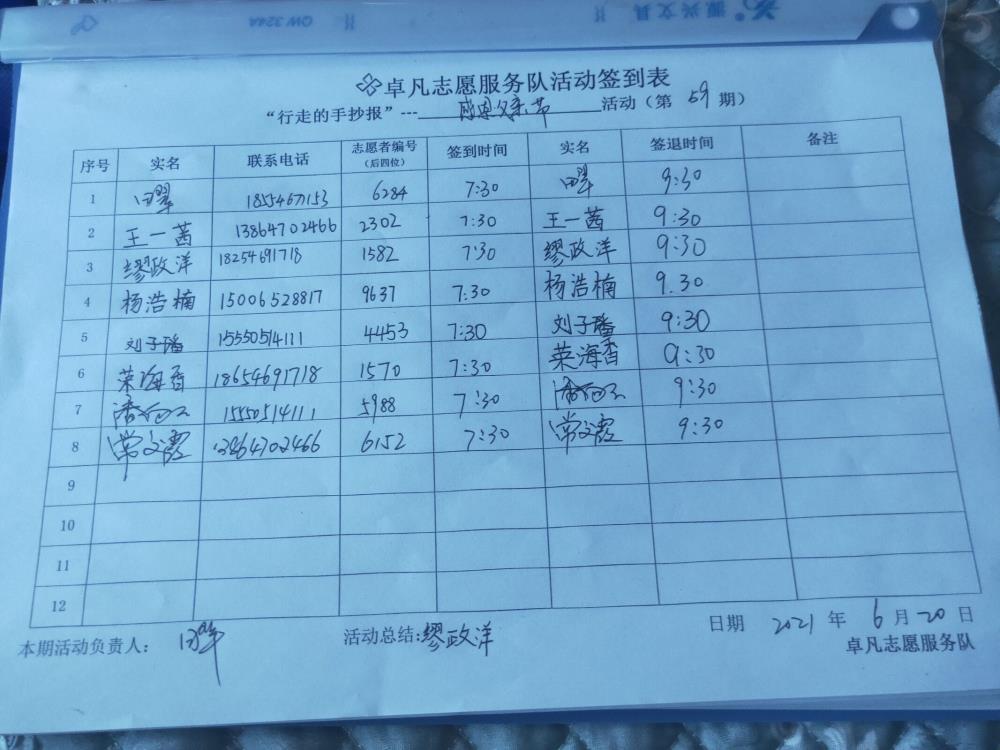 卓凡志愿服务队活动签到表
“行走的手抄报”---感恩父亲节活动（第59期）
序号 实名 联系电话 志愿者编号（后四位） 签到时间 实名 签退时间 备注
1 田翠 18554671153 6284 7:30 田翠 9:30
2 王一茜 13864702466 2302 7:30 王一茜 9:30
3 缪政洋 18254691718 1582 7:30 缪政洋 9:30
4 杨浩楠 15006528817 9637 7:30 杨浩楠 9.30
5 刘子璠 15550514111 4453 7:30 刘子璠 9:30
6 荣海香 18654691718 1570 7:30 荣海香 9:30
7 15550514111 5988 7:30 9:30
8 常文霞 13864702466 6152 7:30 常文霞 9:30
9
10
11
12
本期活动负责人： 田翠 活动总结:缪政洋 日期 2021 年 6 月 20 日
卓凡志愿服务队